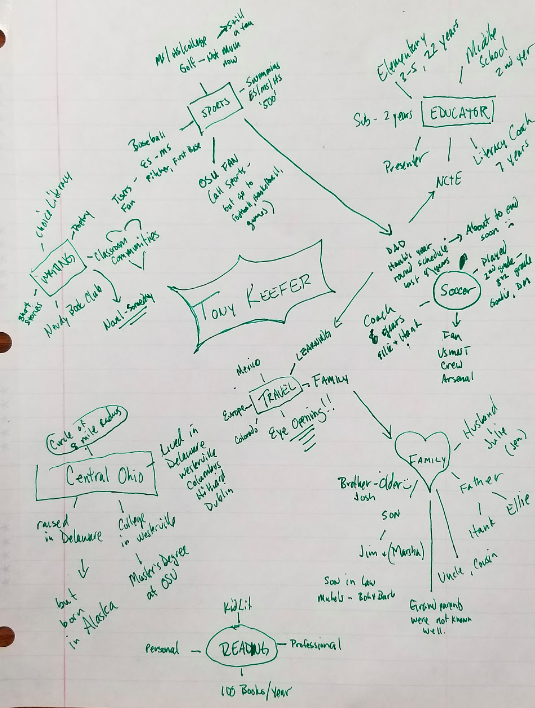 MS/HS/College
Golf - Not much
now
Still
a fan
Swimming
ES/MS/HS
'500'
SPORTS
Baseball
ES - MS
Pitcher, First Base
Tigers
Fan
OSU FAN
all sports -
but go to
football, basketball
games
Elementary
3-5, 22 years
Middle
School
2nd year
Sub - 2 years
EDUCATOR
Presenter
NCTE
Literacy Coach
7 years
Choice Literacy
Poetry
WRITING
Classroom
Communities
Short
Stories
Nerdy Book Club
Novel - Someday
TONY KEEFER
DAD
round schedule
About to end
soon
Soccer
Played
2nd grade -
8th grade
Coach
6 years
Ellie + Hank
Fan
USMNT
Crew
Arsenal
LEARNING
Mexico
TRAVEL
FAMILY
Europe
Colorado
Eye Opening!!
Circle of
8 mile radius
Central Ohio
Lived in
Delaware
Westerville
Columbus
Hilliard
Dublin
raised
in Delaware
College
in Westerville
but
born
in Alaska
Master's Degree
at OSU
FAMILY
Husband
Julie
(Jen)
Father
Hank
Ellie
Uncle, Cousin
Brother - Older
Josh
SON
Jim + (Marsha)
Son in law
Grandparents
were not known
well.
KidLit
Personal
READING
Professional
100 Books/Year